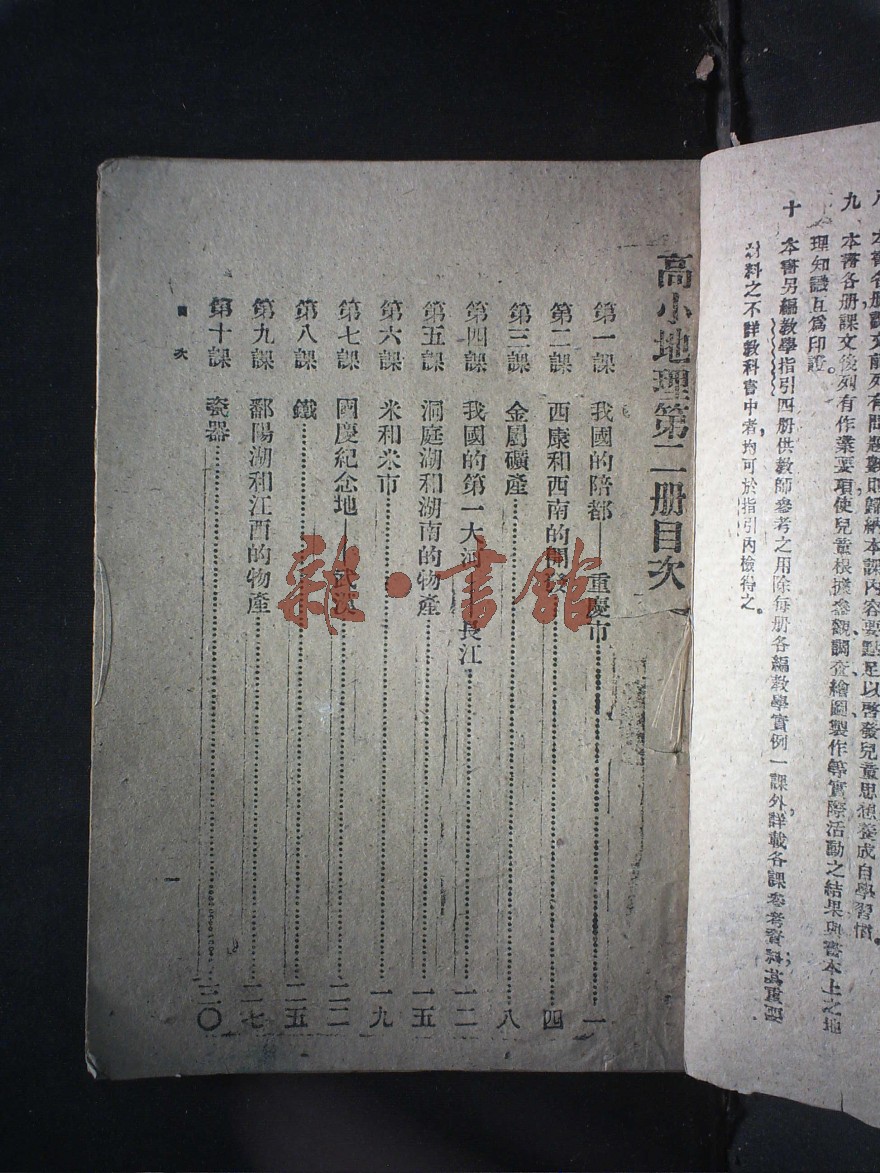 本書各册課文前列有問題數則歸納本課內容要點足以啓發兒童思想養成自學習慣。
九 本書各册課文後列有作業要項使兒童根據參觀、調查、繪圖、製作等實際活動之結果與書本上之地
理知識互爲印證。
十 本書另編教學指引四册供教師參考之用除每册各編教學實例一課外、詳載各課參考資料其重要
材料之不詳教科書中者、均可於指引內檢得之。
高小地理第二册目次
第一課 我國的陪都——重慶市 一
第二課 西康和西南的開發 四
第三課 金屬礦產 八
第四課 我國的第一大河 長江 一二
第五課 洞庭湖和湖南的物產 一五
第六課 米和米市 一九
第七課 國慶紀念地——武漢 二二
第八課 鐵 二五
第九課 鄱陽湖和江西的物產 二七
第十課 瓷器 三〇
目次
一
雜·書館